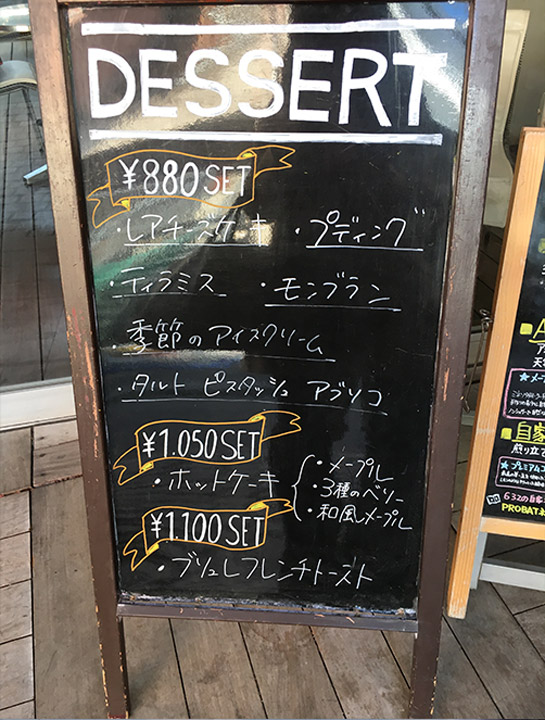 DESSERT
¥880 SET
・レアチーズケーキ ・プディング
・ティラミス ・モンブラン
・季節のアイスクリーム
・タルト ピスタッシュ アブリコ
¥1.050 SET
・ホットケーキ
・メープル
・3種のベリー
・和風メープル
¥1.100 SET
・ブリュレフレンチトースト
■自家
煎り立て
★プレミアムコ
632の自家
PROBAT